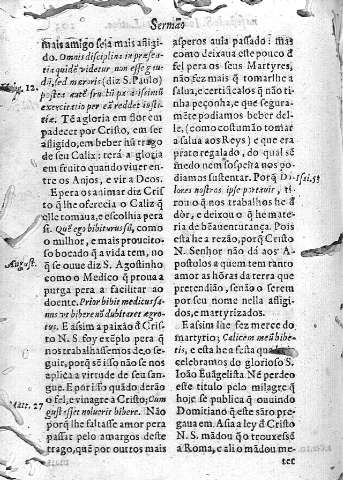 Sermão
mais amigo seja mais afligi-
do. Omnis disciplina in præsen-
tia quidē videtur non esse gau-
dij, sed mœroris (diz S. Paulo)
12.
postea autē fructū pacatissimū
exercitatis per eā reddet iusti-
tiæ. Tē a gloria em flor em
padecer por Cristo, em ser
afligido, em beber hũ trago
de seu Calix: terá a gloria
em fruito quando viuer entre
os Anjos, e vir a Deos.
E pera os animar diz Cris
to q̃ lhe oferecia o Caliz q̃
elle tomaua, e escolhia pera
si. Quē ego bibiturus sū, como
o milhor, e mais proueito-
so bocado q̃ a vida tem, no
August.
q̃ se ouue diz S. Agostinho
como o Medico q̃ proua a
purga pera a facilitar ao
doente. Prior bibit medicus sa-
nus vt bibere nō dubitaret ægro-
tus. E assim a paixão d̃ Cris-
to N. S. foy exēplo pera q̃
nos trabalhassemos de, o se-
guir, porq̃ sē isso não se nos
aplica a virtude de seu san-
gue. E por isso quādo, derão
o fel, e vinagre a Cristo; Cum
Matt. 27
gustasset noluerit bibere. Não
porq̃ lhe faltasse amor pera
passar pelo amargos deste
trago, quē por outros mais
asperos auia passado: mas
como deixaua este pouco d̃
fel pera os seus Martyres,
não fez mais q̃ tomarlhe a
salua, e certificalos q̃ não ti-
nha peçonha, e que segura-
mēte podiamos beber del-
le, (como costumão tomar
a salua aos Reys) e que era
prato regalado, do qual sē
medo nem sospeita nos po-
diamos sustentar. Porq̃ Do-
Isai. 53
lores nostros ipse portauit, ti-
rou o q̃ nos trabalhos he d̃
dòr, e deixou o q̃ he mate-
ria de bẽauenturança. Pois
esta he a rezão, porq̃ Cristo
N. Senhor não dá aos A-
postolos a quem tem tanto
amor as hõras da terra que
pretendião, senão o serem
por seu nome nella afligi-
dos, e martyrizados.
E assim lhe fez merce do
martyrio; Calicem meū bibe-
tis, e esta he a festa q̃ oje
celebramos do glorioso S.
Ioão Euãgelista. Nē perdeo
este titulo pelo milagre q̃
hoje se publica q̃ ouuindo
Domitiano q̃ este sãto pre-
gaua em Asia a ley d̃ Cristo
N. S. mādou q̃ o trouxessẽ
a Roma, e ali o mādou me-
ter